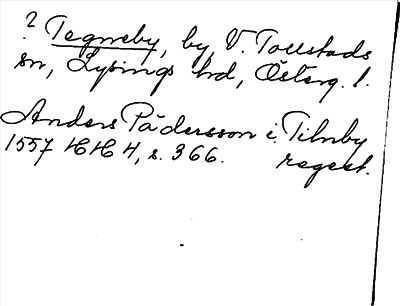 ? Tegneby, by, V. Tollstads
sn, Lysings hd, Österg. l.
Anders Pädersson i Tilnby
1557 HH 4, s. 366. regest.